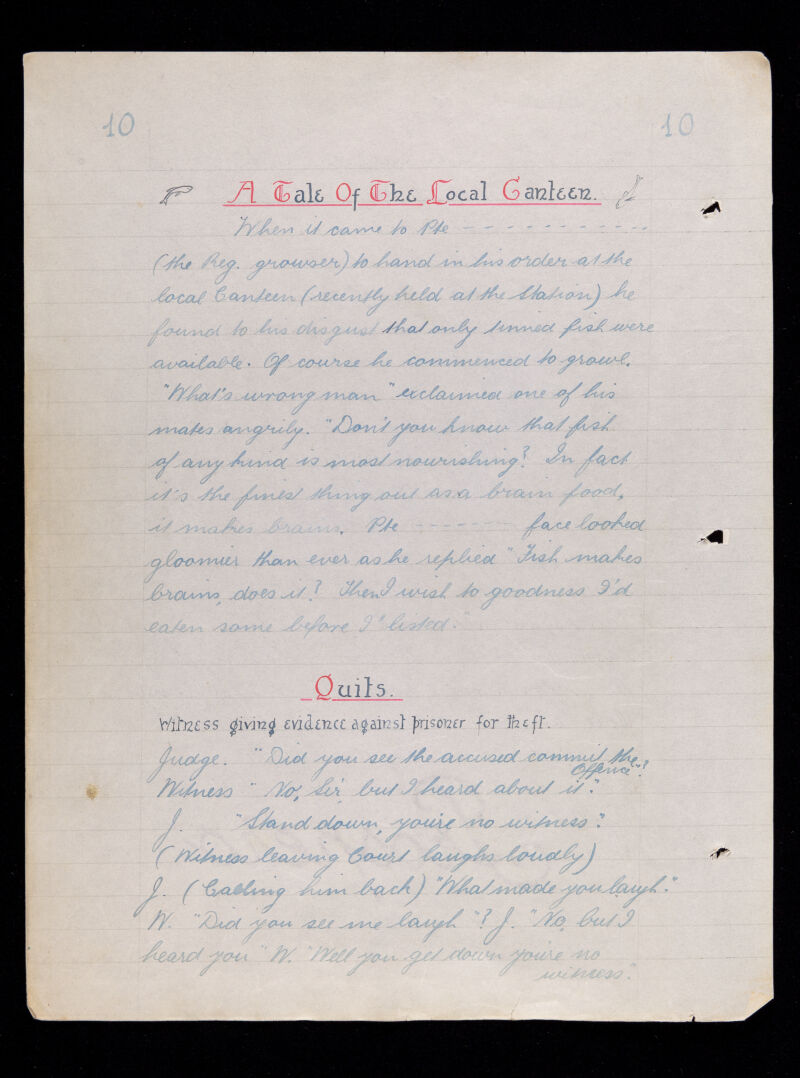 10 10
A Tale Of The Local Canteen.
When it came to Pte - - - - - - - - - - -
(the Reg. growser) to hand in his order at the
local Canteen (recently held at the Station) he
found to his disgust that only tinned fish were
available. Of course he commenced to growl.
"What's wrong man" exclaimed one of his
mates angrily. "Don't you know that fish
of any kind is most nourishing? In fact
it's the finest thing out as a brain food,
it makes brains. Pte - - - - - - - face looked
gloomier than ever as he replied "Fish makes
brains, does it? Then I wish to goodness I'd
eaten some before I 'listed."
Quits.
Witness giving evidence against prisoner for theft.
Judge. "Did you see the accused commit the
Offence"?
Witness "No, Sir but I heard about it".
J. "Stand down, you're no witness".
(Witness leaving Court laughs loudly)
J. (Calling him back) "What made you laugh".
W. "Did you see me laugh"? J. "No, but I
heard you" W. "Well you get down you're no
witness".